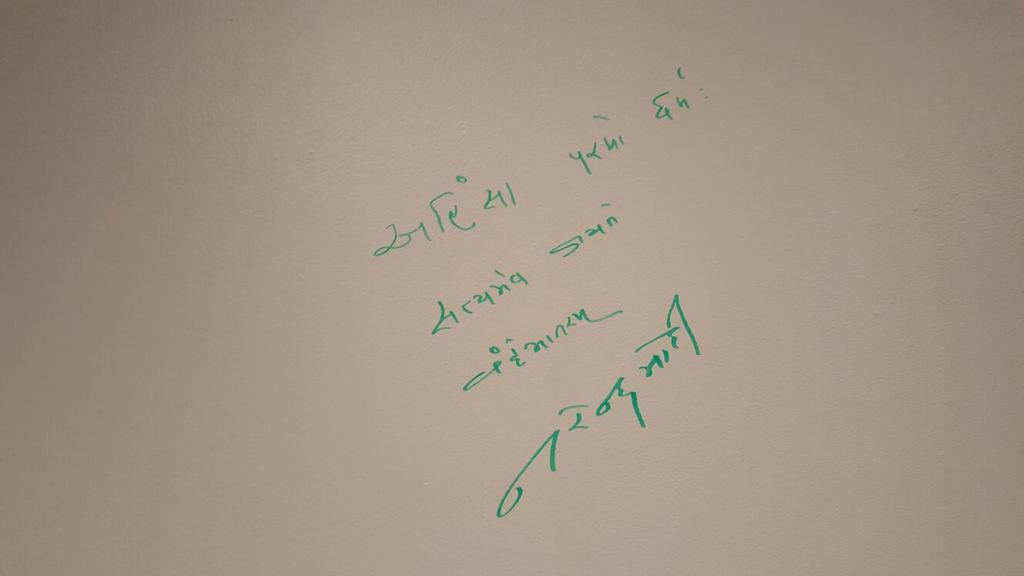 અહિંસા પરમો ધર્મ:
સત્યમેવ જયતે
વંદેમાતરમ્
नरेन्द्र मोदी